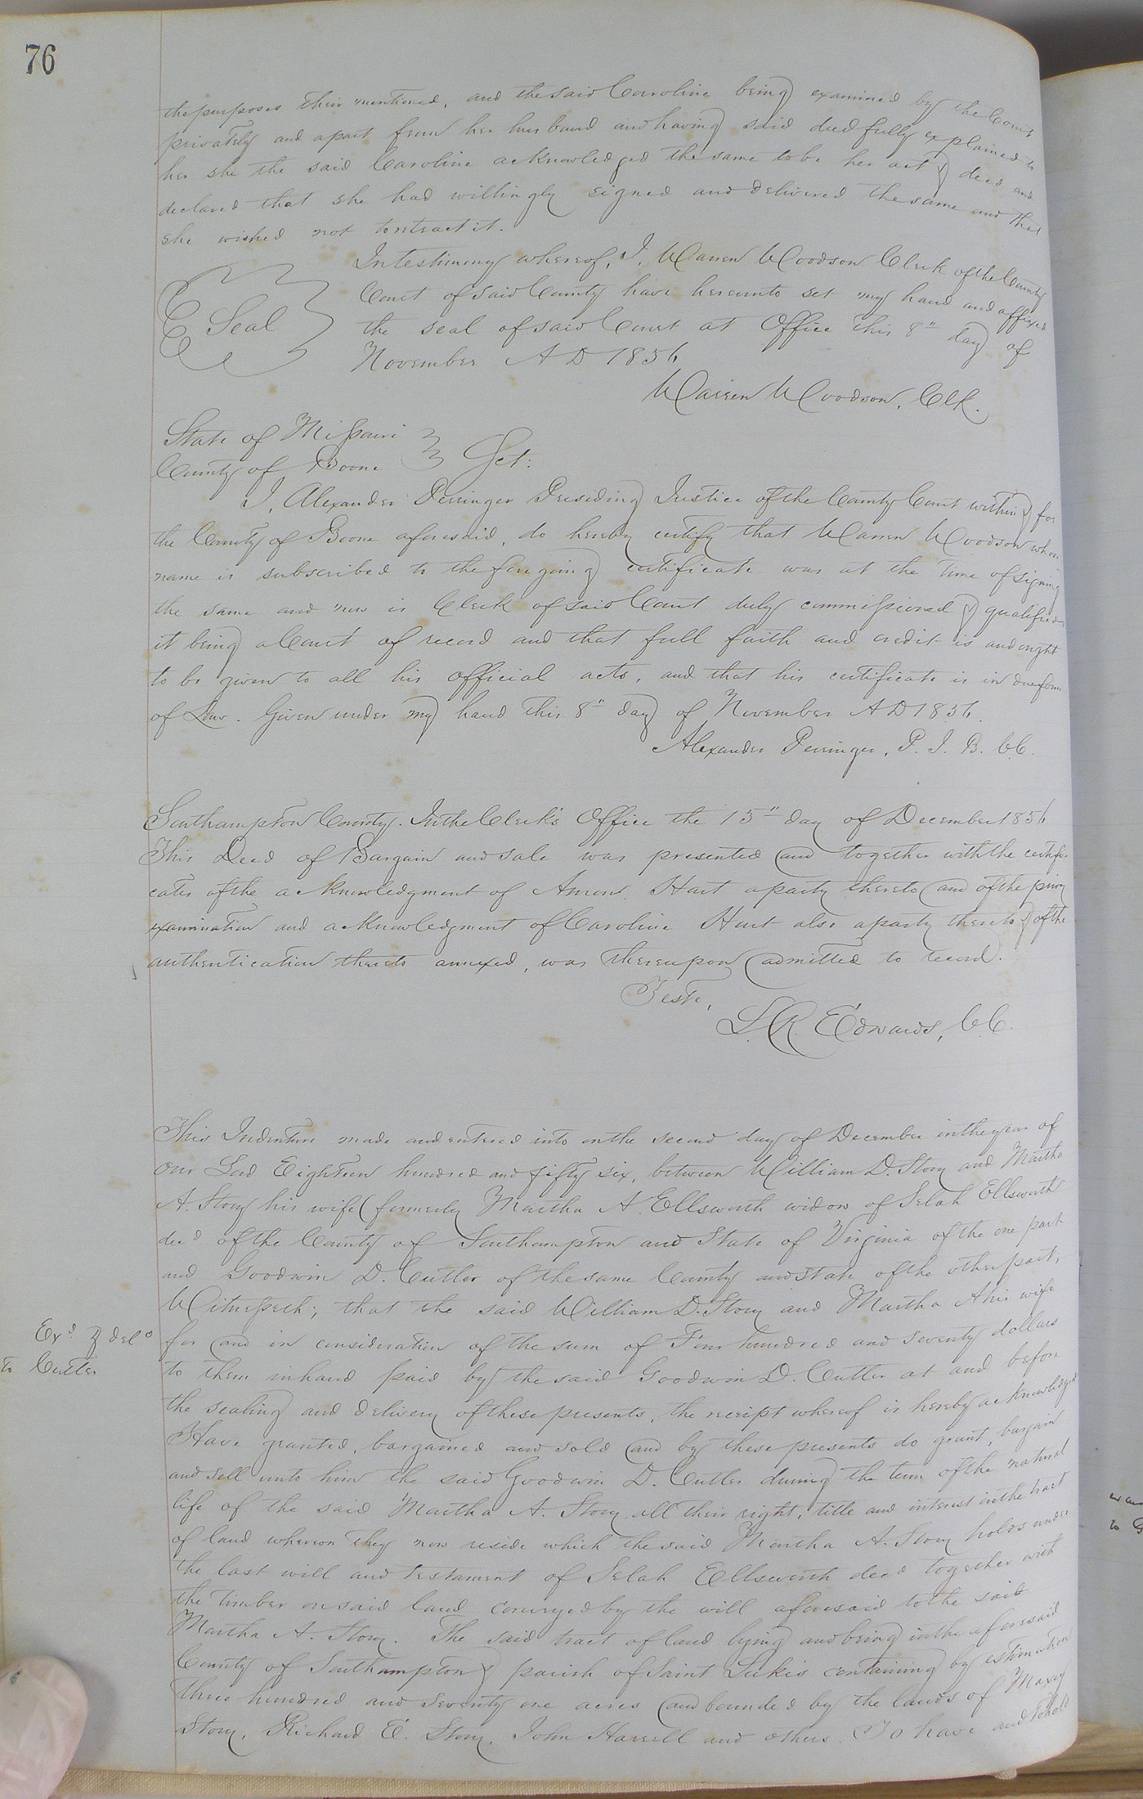 76
the purposes therein mentioned, and the said Caroline being examined by the Court
privately and apart from her husband and having said deed fully explained to
her she the said Caroline acknowledged the same to be her act & deed and
declared that she had willingly signed and delivered the same and that
she wished not to retract it.
In testimony whereof, I, Warren Woodson Clerk of the County
Court of said County have hereunto set my hand and affixed
Seal
the seal of said Court at Office this 8" day of
November A D 1856
Warren Woodson, Clk.
State of Missouri
County of Boone } Sct:
I, Alexander Persinger Presiding Justice of the County Court within & for
the County of Boone aforesaid, do hereby certify that Warren Woodson whose
name is subscribed to the foregoing certificate was at the time of signing
the same and now is Clerk of said Court duly commissioned & qualified
it being a Court of record and that full faith and credit is and ought
to be given to all his official acts, and that his certificate is in due form
of Law. Given under my hand this 8" day of November A D 1856.
Alexander Persinger, P. J. B. C. C.
Southampton County. In the Clerk's Office the 15" day of December 1856
This Deed of Bargain and sale was presented and together with the certifi
cates of the acknowledgment of Hart a party thereto and of the privy
examination and acknowledgment of Caroline Hart also a party thereto & of the
authentication thereto annexed, was thereupon admitted to record.
Teste,
L. R. Edwards, C. C.
This Indenture made and entered into on the second day of December in the year of
our Lord Eighteen hundred and fifty six, between William D. Story and Martha
A. Story his wife (formerly Martha A. Ellsworth widow of Selah Ellsworth
decd of the County of Southampton and State of Virginia of the one part
and Goodwin D. Cutler of the same County and State of the other part,
Witnesseth; that the said William D. Story and Martha A his wife
Exd & deld
to Cutler
for and in consideration of the sum of Four hundred and seventy dollars
to them in hand paid by the said Goodwin D. Cutler at and before
the sealing and delivery of these presents, the receipt whereof is hereby acknowledged
Have granted, bargained and sold and by these presents do grant, bargain
and sell unto him the said Goodwin D. Cutler during the term of the natural
life of the said Martha A. Story all their right, title and interest in the tract
of land whereon they now reside which the said Martha A. Story holds under
the last will and testament of Selah Ellsworth decd together with
the timber on said land conveyed by the will aforesaid to the said
Martha A. Story. The said tract of land lying and being in the aforesaid
County of Southampton & parish of Saint Luke's containing by estimation
three hundred and seventy one acres and bounded by the lands of
Story, Richard E. Story, John Harrell and others. To have and to hold